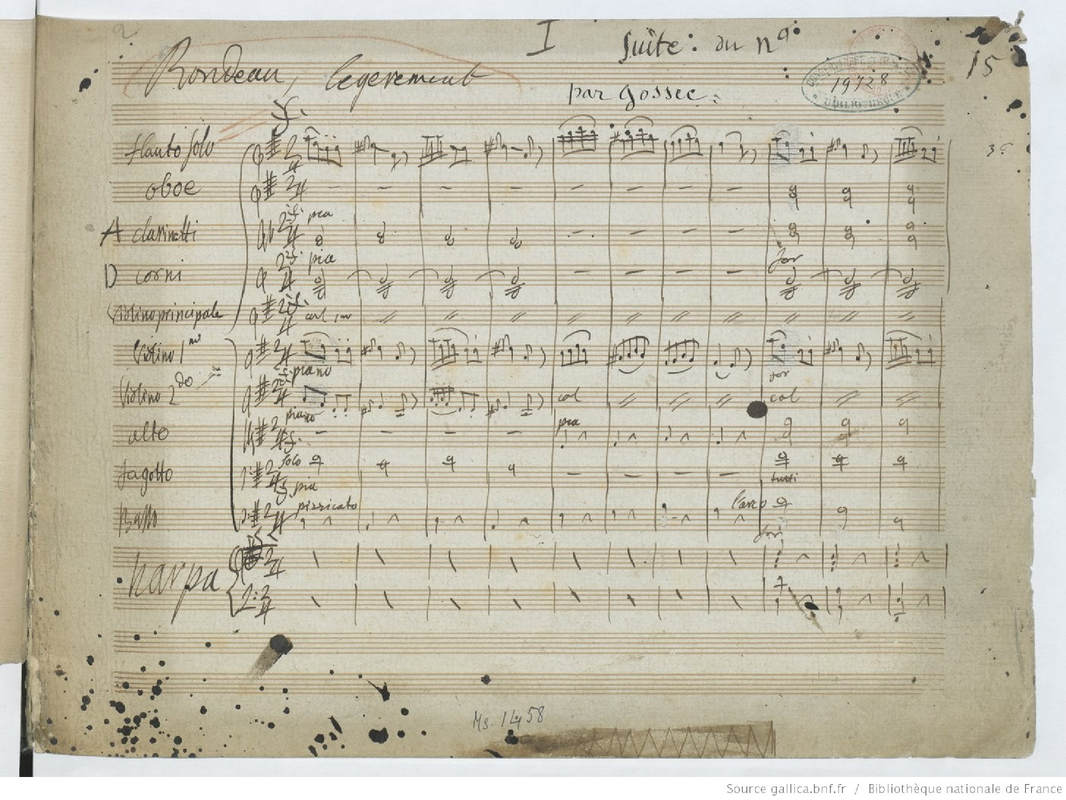 I
Suite: du nº
15
Rondeau, legerement
par Gossec:
19728
BIBLIOTHEQUE
flauto solo
oboe
A clarinetti
pia
D corni
pia
for
violino principale
col 1mo
violino 1mo
piano
for
violino 2do
piano
col
col
alto
pia
fagotto
solo
pia
tutti
Basso
pizzicato
l'arco
for
harpa
Ms. 1458
Source gallica.bnf.fr / Bibliothèque nationale de France